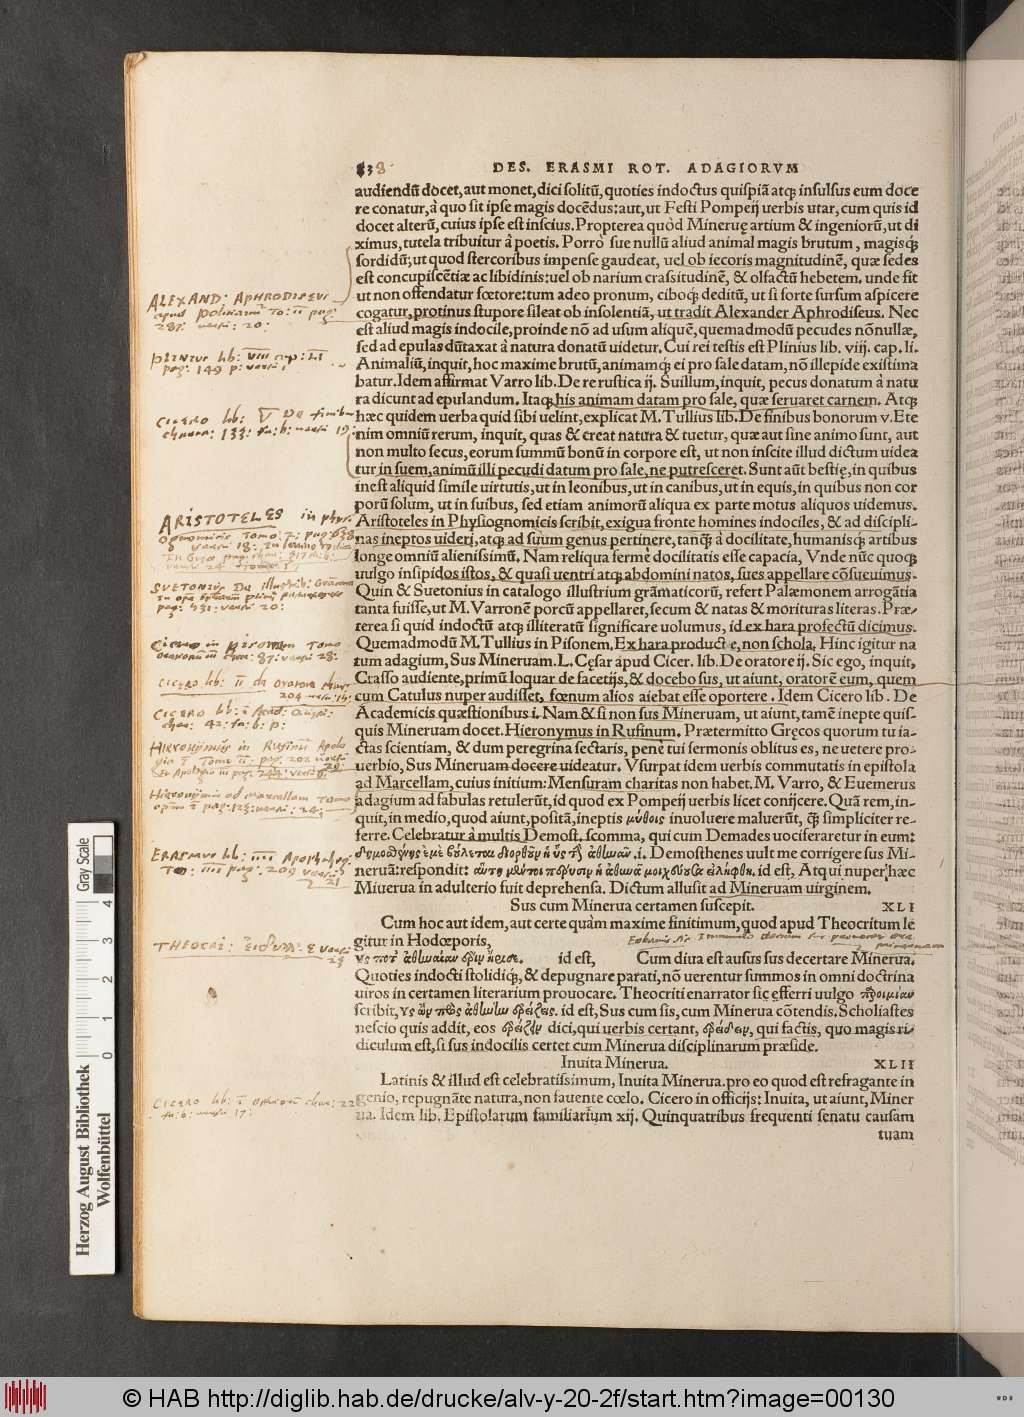 838
DES. ERASMI ROT. ADAGIORVM
audiendū docet, aut monet, dici solitū, quoties indoctus quispiā atq; insulsus eum doce
re conatur, à quo sit ipse magis docēdus: aut, ut Festi Pompeij uerbis utar, cum quis id
docet alterū, cuius ipse est inscius. Propterea quòd Mineruę artium & ingeniorū, ut di
ximus, tutela tribuitur à poetis. Porrò sue nullū aliud animal magis brutum, magisq́;
sordidū; ut quod stercoribus impense gaudeat, uel ob iecoris magnitudinē, quæ sedes
est concupiscētiæ ac libidinis: uel ob narium crassitudinē, & olfactū hebetem. unde fit
ut non offendatur fœtore: tum adeo pronum, ciboq́; deditū, ut si forte sursum aspicere
cogatur, protinus stupore sileat ob insolentiā, ut tradit Alexander Aphrodiseus. Nec
est aliud magis indocile, proinde nō ad usum aliquē, quemadmodū pecudes nōnullæ,
sed ad epulas dūtaxat à natura donatū uidetur. Cui rei testis est Plinius lib. viij. cap. li.
Animaliū, inquit, hoc maxime brutū, animamq́; ei pro sale datam, nō illepide existima
batur. Idem affirmat Varro lib. De re rustica ij. Suillum, inquit, pecus donatum à natu
ra dicunt ad epulandum. Itaq; his animam datam pro sale, quæ seruaret carnem. Atq;
hæc quidem uerba quid sibi uelint, explicat M. Tullius lib. De finibus bonorum v. Ete
nim omniū rerum, inquit, quas & creat natura & tuetur, quæ aut sine animo sunt, aut
non multo secus, eorum summū bonū in corpore est, ut non inscite illud dictum uidea
tur in suem, animū illi pecudi datum pro sale, ne putresceret. Sunt aūt bestię, in quibus
inest aliquid simile uirtutis, ut in leonibus, ut in canibus, ut in equis, in quibus non cor
porū solum, ut in suibus, sed etiam animorū aliqua ex parte motus aliquos uidemus.
Aristoteles in Physiognomicis scribit, exigua fronte homines indociles, & ad discipli-
nas ineptos uideri, atq; ad suum genus pertinere, tanq̄ à docilitate, humanisq́; artibus
longe omniū alienissimū. Nam reliqua fermè docilitatis esse capacia, Vnde nūc quoq;
uulgo insipidos istos, & quasi uentri atq; abdomini natos, sues appellare cōsueuimus.
Quin & Suetonius in catalogo illustrium grāmaticorū, refert Palæmonem arrogātia
tanta fuisse, ut M. Varronē porcū appellaret, secum & natas & morituras literas. Præ-
terea si quid indoctū atq; illiteratū significare uolumus, id ex hara profectū dicimus.
Quemadmodū M. Tullius in Pisonem. Ex hara producte, non schola. Hinc igitur na
tum adagium, Sus Mineruam. L. Cęsar apud Cicer. lib. De oratore ij. Sic ego, inquit,
Crasso audiente, primū loquar de facetijs, & docebo sus, ut aiunt, oratorē eum, quem
cum Catulus nuper audisset, fœnum alios aiebat esse oportere. Idem Cicero lib. De
Academicis quæstionibus i. Nam & si non sus Mineruam, ut aiunt, tamē inepte quis-
quis Mineruam docet. Hieronymus in Rufinum. Prætermitto Gręcos quorum tu ia-
ctas scientiam, & dum peregrina sectaris, penè tui sermonis oblitus es, ne uetere pro-
uerbio, Sus Mineruam docere uideatur. Vsurpat idem uerbis commutatis in epistola
ad Marcellam, cuius initium: Mensuram charitas non habet. M. Varro, & Euemerus
adagium ad fabulas retulerūt, id quod ex Pompeij uerbis licet conijcere. Quā rem, in-
quit, in medio, quod aiunt, positā, ineptis μύθοις inuoluere maluerūt, q̄ simpliciter re-
ferre. Celebratur à multis Demost. scomma, qui cum Demades uociferaretur in eum:
Δημοσθένης ἐμὲ βούλεται διορθοῦν ἡ ὗς τὴν ἀθηνᾶν .i. Demosthenes uult me corrigere sus Mi-
neruā: respondit: αὕτη μέντοι πέρυσιν ἡ ἀθηνᾶ μοιχεύουσα ἐλήφθη. id est, Atqui nuper hæc
Miuerua in adulterio fuit deprehensa. Dictum allusit ad Mineruam uirginem.
Sus cum Minerua certamen suscepit. XLI
Cum hoc aut idem, aut certe quàm maxime finitimum, quod apud Theocritum le
gitur in Hodœporis,
ὗς ποτ' ἀθηναίαν ἔριν ἤρισε. id est, Cum diua est ausus sus decertare Minerua.
Quoties indocti stolidiq́;, & depugnare parati, nō uerentur summos in omni doctrina
uiros in certamen literarium prouocare. Theocriti enarrator sic efferri uulgo παροιμίαν
scribit, ὗς ὢν πρὸς ἀθηνᾶν ἐρίζεις. id est, Sus cum sis, cum Minerua cōtendis. Scholiastes
nescio quis addit, eos ἐρίζειν dici, qui uerbis certant, ἐρίδειν, qui factis, quo magis ri-
diculum est, si sus indocilis certet cum Minerua disciplinarum præside.
Inuita Minerua. XLII
Latinis & illud est celebratissimum, Inuita Minerua. pro eo quod est refragante in
genio, repugnāte natura, non fauente cœlo. Cicero in officijs: Inuita, ut aiunt, Miner
ua. Idem lib. Epistolarum familiarium xij. Quinquatribus frequenti senatu causam
tuam
ALEXAND: APHRODISEUS
apud politianum to: II pag:
287: versu: 20:
PLINIUS lib: VIII cap: LI
pag: 149
CICERO lib: V De finibus
133: fa: b: versu 19:
ARISTOTELES in phys:
SUETONIUS De illustrib: Gram
pag: 431: versu 20:
Cicero in pisonem Tomo
87: versu 28:
CICERO lib: II de oratore
204
CICERO lib: I Acad: Quæst:
42: fa: b: p:
Hieronymus in Rufinum Apolo
Hieronymus ad marcellam Tomo
ERASMUS lib: IIII Apophtheg
To: IIII pag: 209 versu
21
THEOCRI:
CICERO lib: I
fa: b: versu 17:
Herzog August Bibliothek
Wolfenbüttel
Gray Scale
0 1 2 3 4
© HAB http://diglib.hab.de/drucke/alv-y-20-2f/start.htm?image=00130